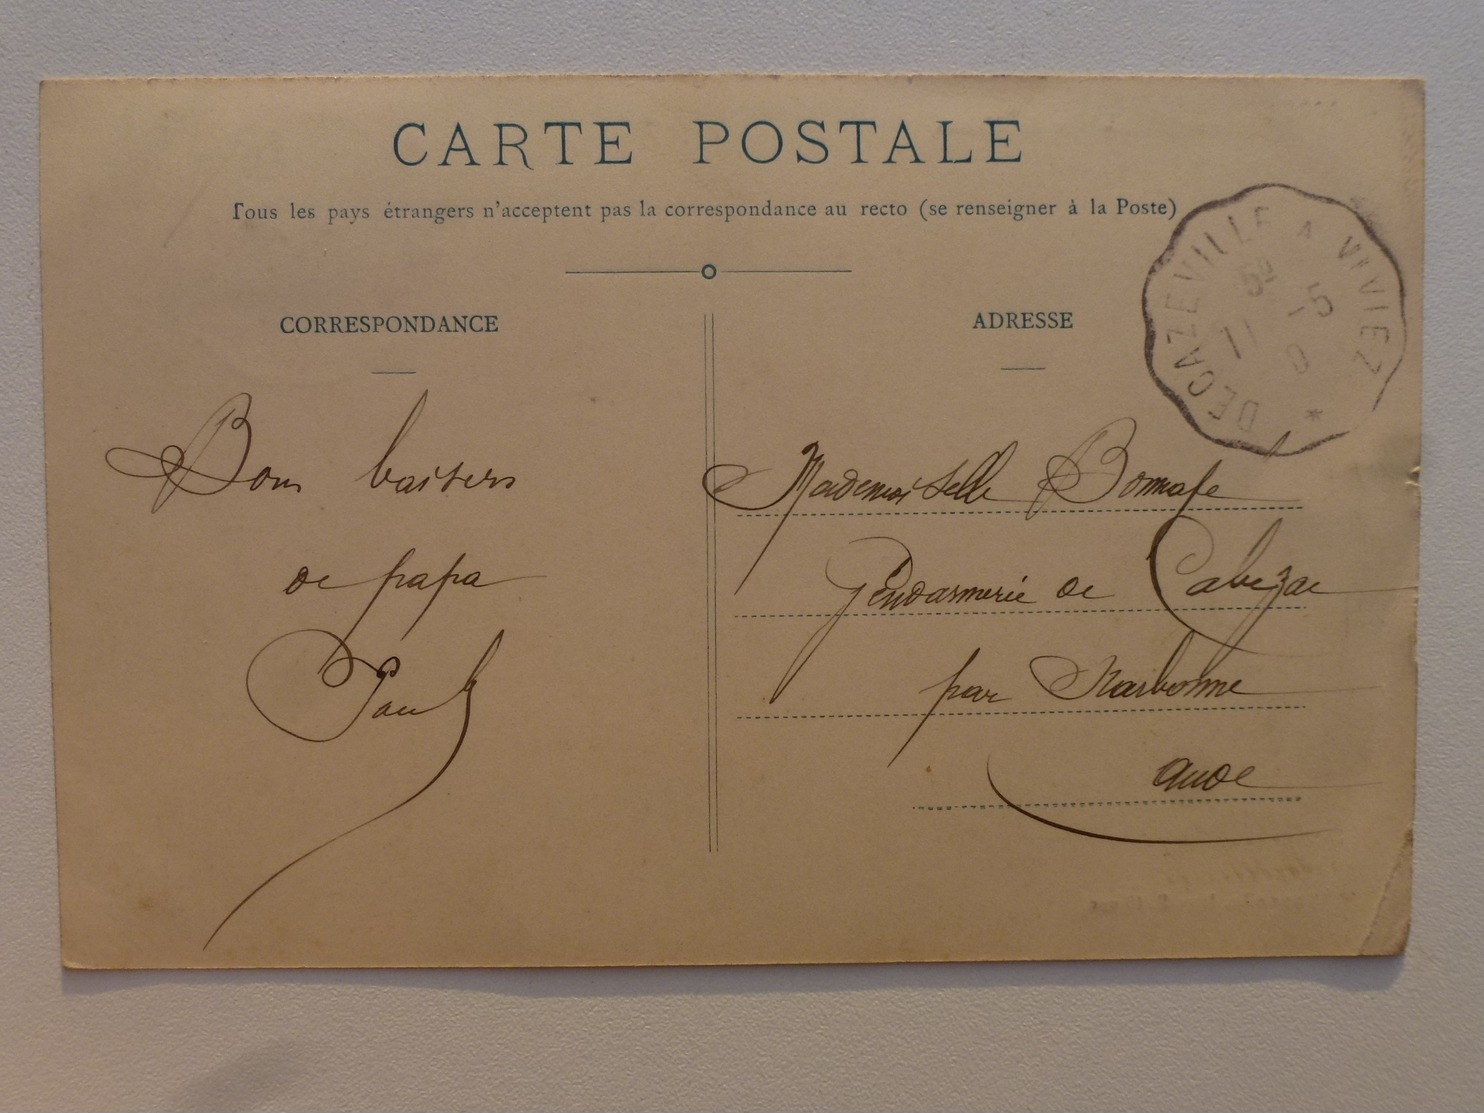 CARTE POSTALE
Tous les pays étrangers n'acceptent pas la correspondance au recto (se renseigner à la Poste)
CORRESPONDANCE
Bons baisers
de papa
Paul
ADRESSE
Mademoiselle Bonnafe
Gendarmerie de Cabezac
par Narbonne
Aude
DECAZEVILLE A VIVIEZ
11 -5